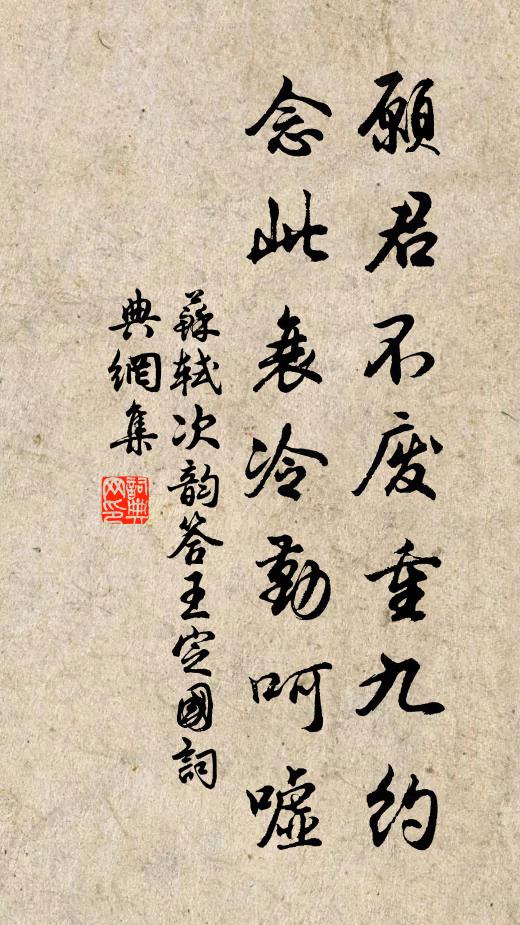 願君不廢重九約
念此衰冷勤呵噓
蘇軾次韵答王定國詞
典網集
詞典網印